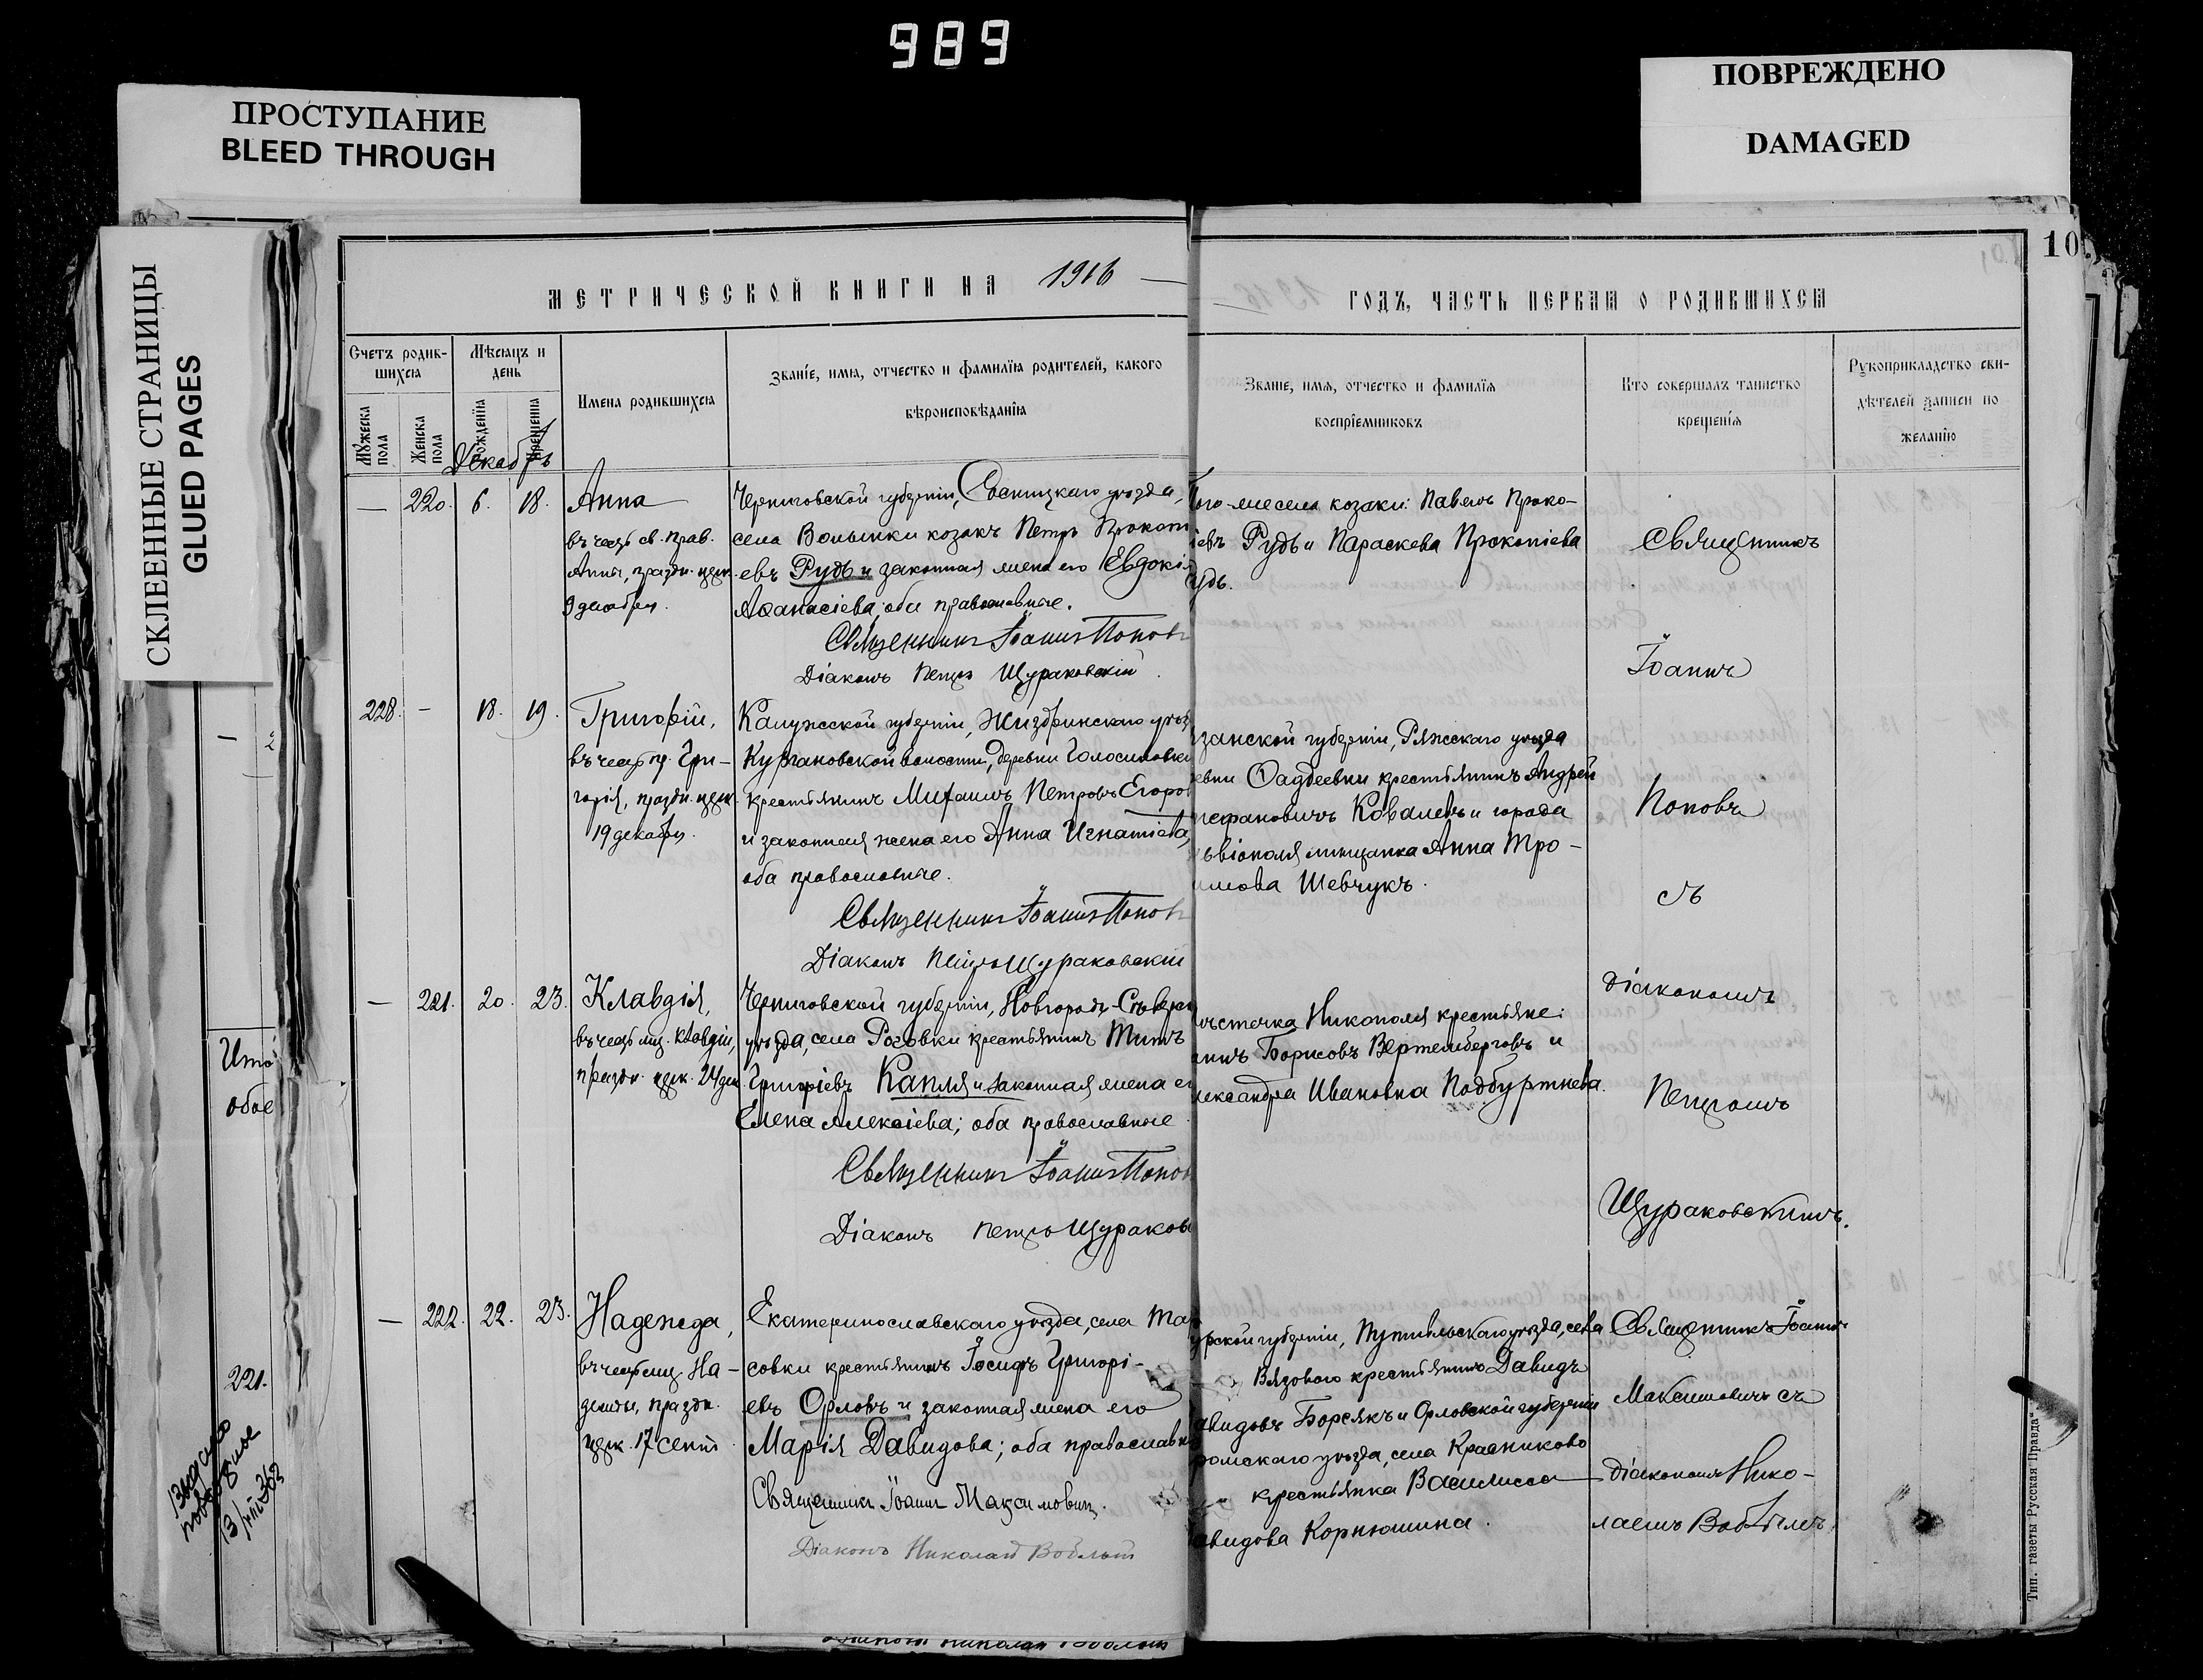 989
ПРОСТУПАНИЕ
BLEED THROUGH
ПОВРЕЖДЕНО
DAMAGED
СКЛЕЕННЫЕ СТРАНИЦЫ
GLUED PAGES
10
МЕТРИЧЕСКОЙ КНИГИ НА 1916
ГОДЪ, ЧАСТЬ ПЕРВАЯ О РОДИВШИХСЯ
Счетъ родившихся
Мужеска пола
Женска пола
Мѣсяцъ и день
рожденїя
крещенїя
Имена родившихся
Званїе, имя, отчество и фамилїя родителей, какого
вѣроисповѣданїя
Званїе, имя, отчество и фамилїя
воспрїемниковъ
Кто совершалъ таинство
крещенїя
Рукоприкладство сви-
дѣтелей записи по
желанїю
Декабрь
— 220. 6. 18.
Анна
въ честь св. прав.
Анны, праздн. церк.
9 декабря.
Черниговской губернiи, Сосницкаго уѣзда,
села Волынки козакъ Петръ Прокопi
евъ Рудь и законная жена его Евдокiя
Аѳанасiева, оба православные.
Священникъ Iоаннъ Поповъ
Дiаконъ Петръ Щураковскiй
Того-же села козаки: Павелъ Проко-
iевъ Рудь и Параскева Прокопiева
удь.
Священникъ
Iоаннъ
228. — 18. 19.
Григорiй,
въ честь пр. Гри-
горiя, праздн. церк.
19 декабря.
Калужской губернiи, Жиздринскаго уѣз
Кургановской волости, деревни Голосиловки
крестьянинъ Михаилъ Петровъ Егоров
и законная жена его Анна Игнатiева,
оба православные.
Священникъ Iоаннъ Поповъ
Дiаконъ Петръ Щураковскiй
занской губернiи, Ряжскаго уѣзда
евни Ѳаддеевки крестьянинъ Андрей
тефановичъ Ковалевъ и города
ьвiополя мѣщанка Анна Тро-
имова Шевчукъ.
Поповъ
съ
— 221. 20. 23.
Клавдiя,
въ честь мц. Клавдiи,
праздн. церк. 24 дек.
Черниговской губернiи, Новгородъ-Сѣверск
уѣзда, села Роговки крестьянинъ Титъ
Григорiевъ Капля и законная жена ег
Елена Алексiева; оба православные
Священникъ Iоаннъ Поповъ
Дiаконъ Петръ Щураковс
ѣстечка Никополя крестьяне:
аинъ Борисовъ Вертембергъ и
лександра Ивановна Подбуртнева.
дiакономъ
Петромъ
Щураковскимъ.
— 222. 22. 23.
Надежда,
въ честь мц. На-
дежды, праздн.
церк. 17 сент.
Екатеринославскаго уѣзда, села Та
совки крестьянинъ Iосифъ Григорi-
евъ Орловъ и законная жена его
Марiя Давидова; оба православн
Священникъ Iоаннъ Максимовичъ.
Дiаконъ Николай Воблый
урской губернiи, Путивльскаго уѣзда, села
Вязового крестьянинъ Давидъ
авидовъ Борсякъ и Орловской губернiи
ромскаго уѣзда, села Красниково
крестьянка Василисса
авидова Корнюшина.
Священникъ Iоаннъ
Максимовичъ съ
дiакономъ Нико-
лаемъ Воблымъ.
Ито
обое
221.
Тип. газеты „Русская Правда“.